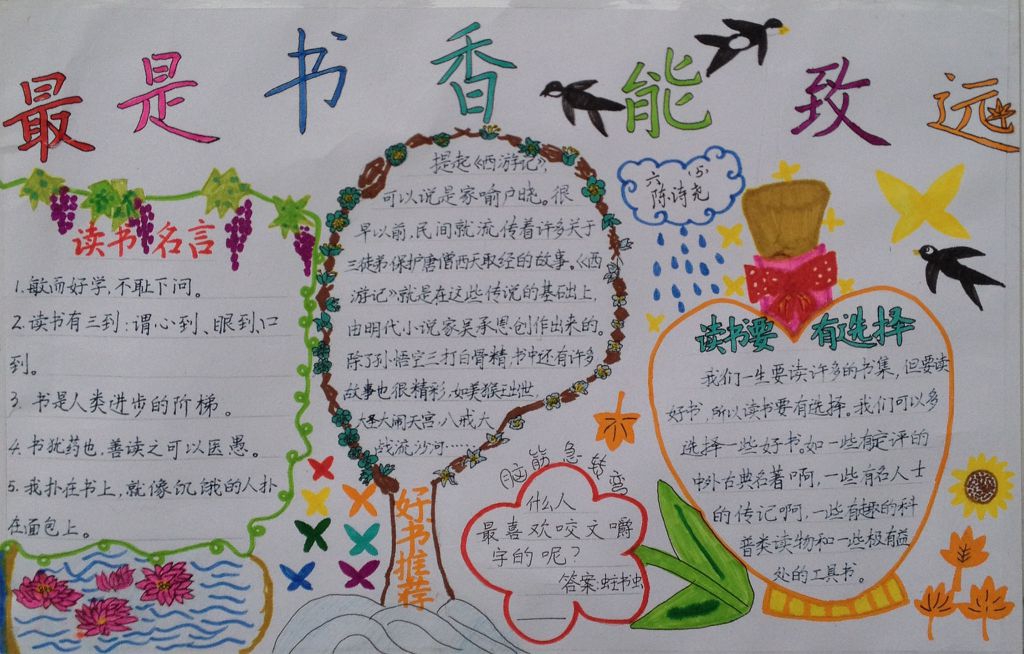 最是书香能致远
六(5)
陈诗尧
读书名言
1.敏而好学,不耻下问。
2.读书有三到:谓心到、眼到、口
到。
3.书是人类进步的阶梯。
4.书犹药也,善读之可以医愚。
5.我扑在书上,就像饥饿的人扑
在面包上。
提起《西游记》,
可以说是家喻户晓。很
早以前,民间就流传着许多关于
三徒弟保护唐僧西天取经的故事。《西
游记》就是在这些传说的基础上,
由明代小说家吴承恩创作出来的。
除了孙悟空三打白骨精,书中还有许多
故事也很精彩,如美猴王出世,
大圣大闹天宫,八戒大
战流沙河……
好书推荐
脑筋急转弯
什么人
最喜欢咬文嚼
字的呢?
答案:蛀书虫
读书要有选择
我们一生要读许多的书集,但要读
好书,所以读书要有选择。我们可以多
选择一些好书。如一些有定评的
中外古典名著啊,一些有名人士
的传记啊,一些有趣的科
普类读物和一些极有益
处的工具书。